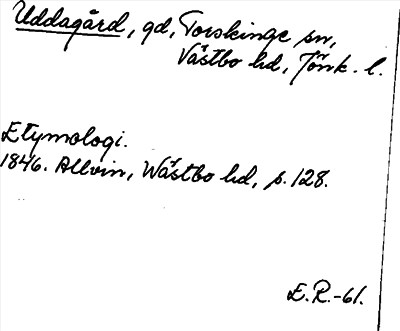 Uddagård, gd, Torskinge sn,
Västbo hd, Jönk. l.
Etymologi.
1846. Allvin, Wästbo hd, s. 128.
E.R.-61.